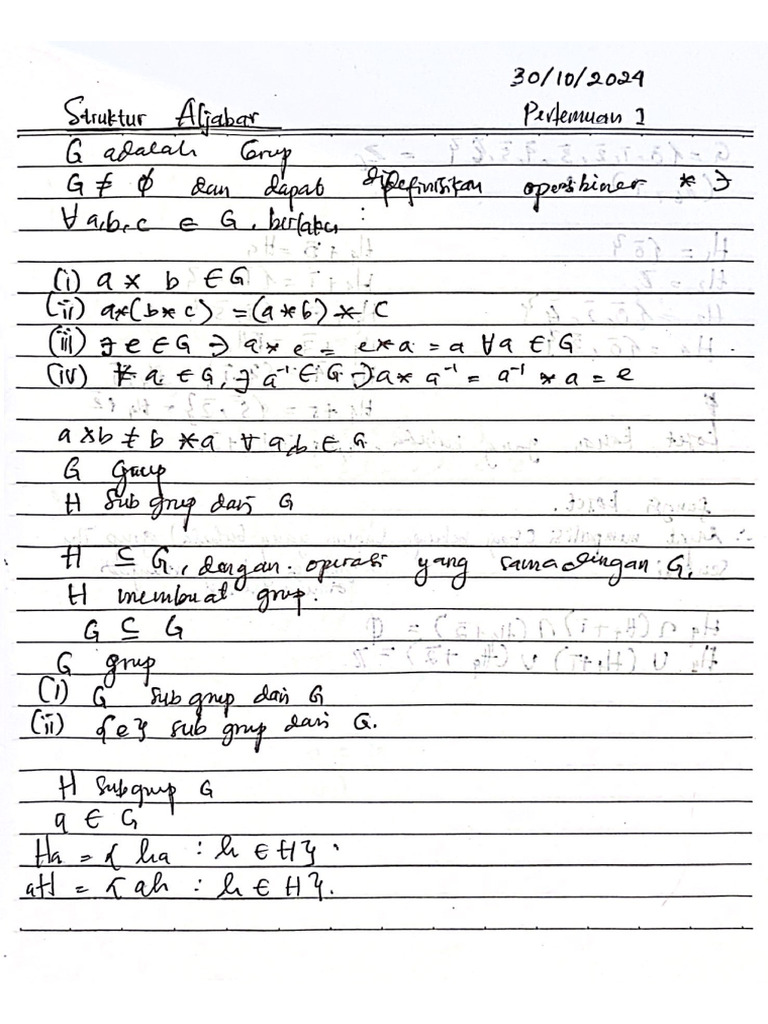 30/10/2024
Struktur Aljabar Pertemuan 1
G adalah Grup
G ≠ ∅ dan dapat didefinisikan operasi biner * ∋
∀ a,b,c ∈ G, berlaku :
(i) a * b ∈ G
(ii) a*(b*c) = (a*b) * c
(iii) ∃ e ∈ G ∋ a * e = e * a = a ∀a ∈ G
(iv) ∀ a ∈ G, ∃ a⁻¹ ∈ G ∋ a * a⁻¹ = a⁻¹ * a = e
a * b ≠ b * a ∀ a,b ∈ G
G Grup
H Sub grup dari G
H ⊆ G, dengan operasi yang sama dengan G,
H membuat grup.
G ⊆ G
G grup
(i) G sub grup dari G
(ii) {e} sub grup dari G.
H Subgrup G
a ∈ G
Ha = { ha : h ∈ H}
aH = { ah : h ∈ H}.